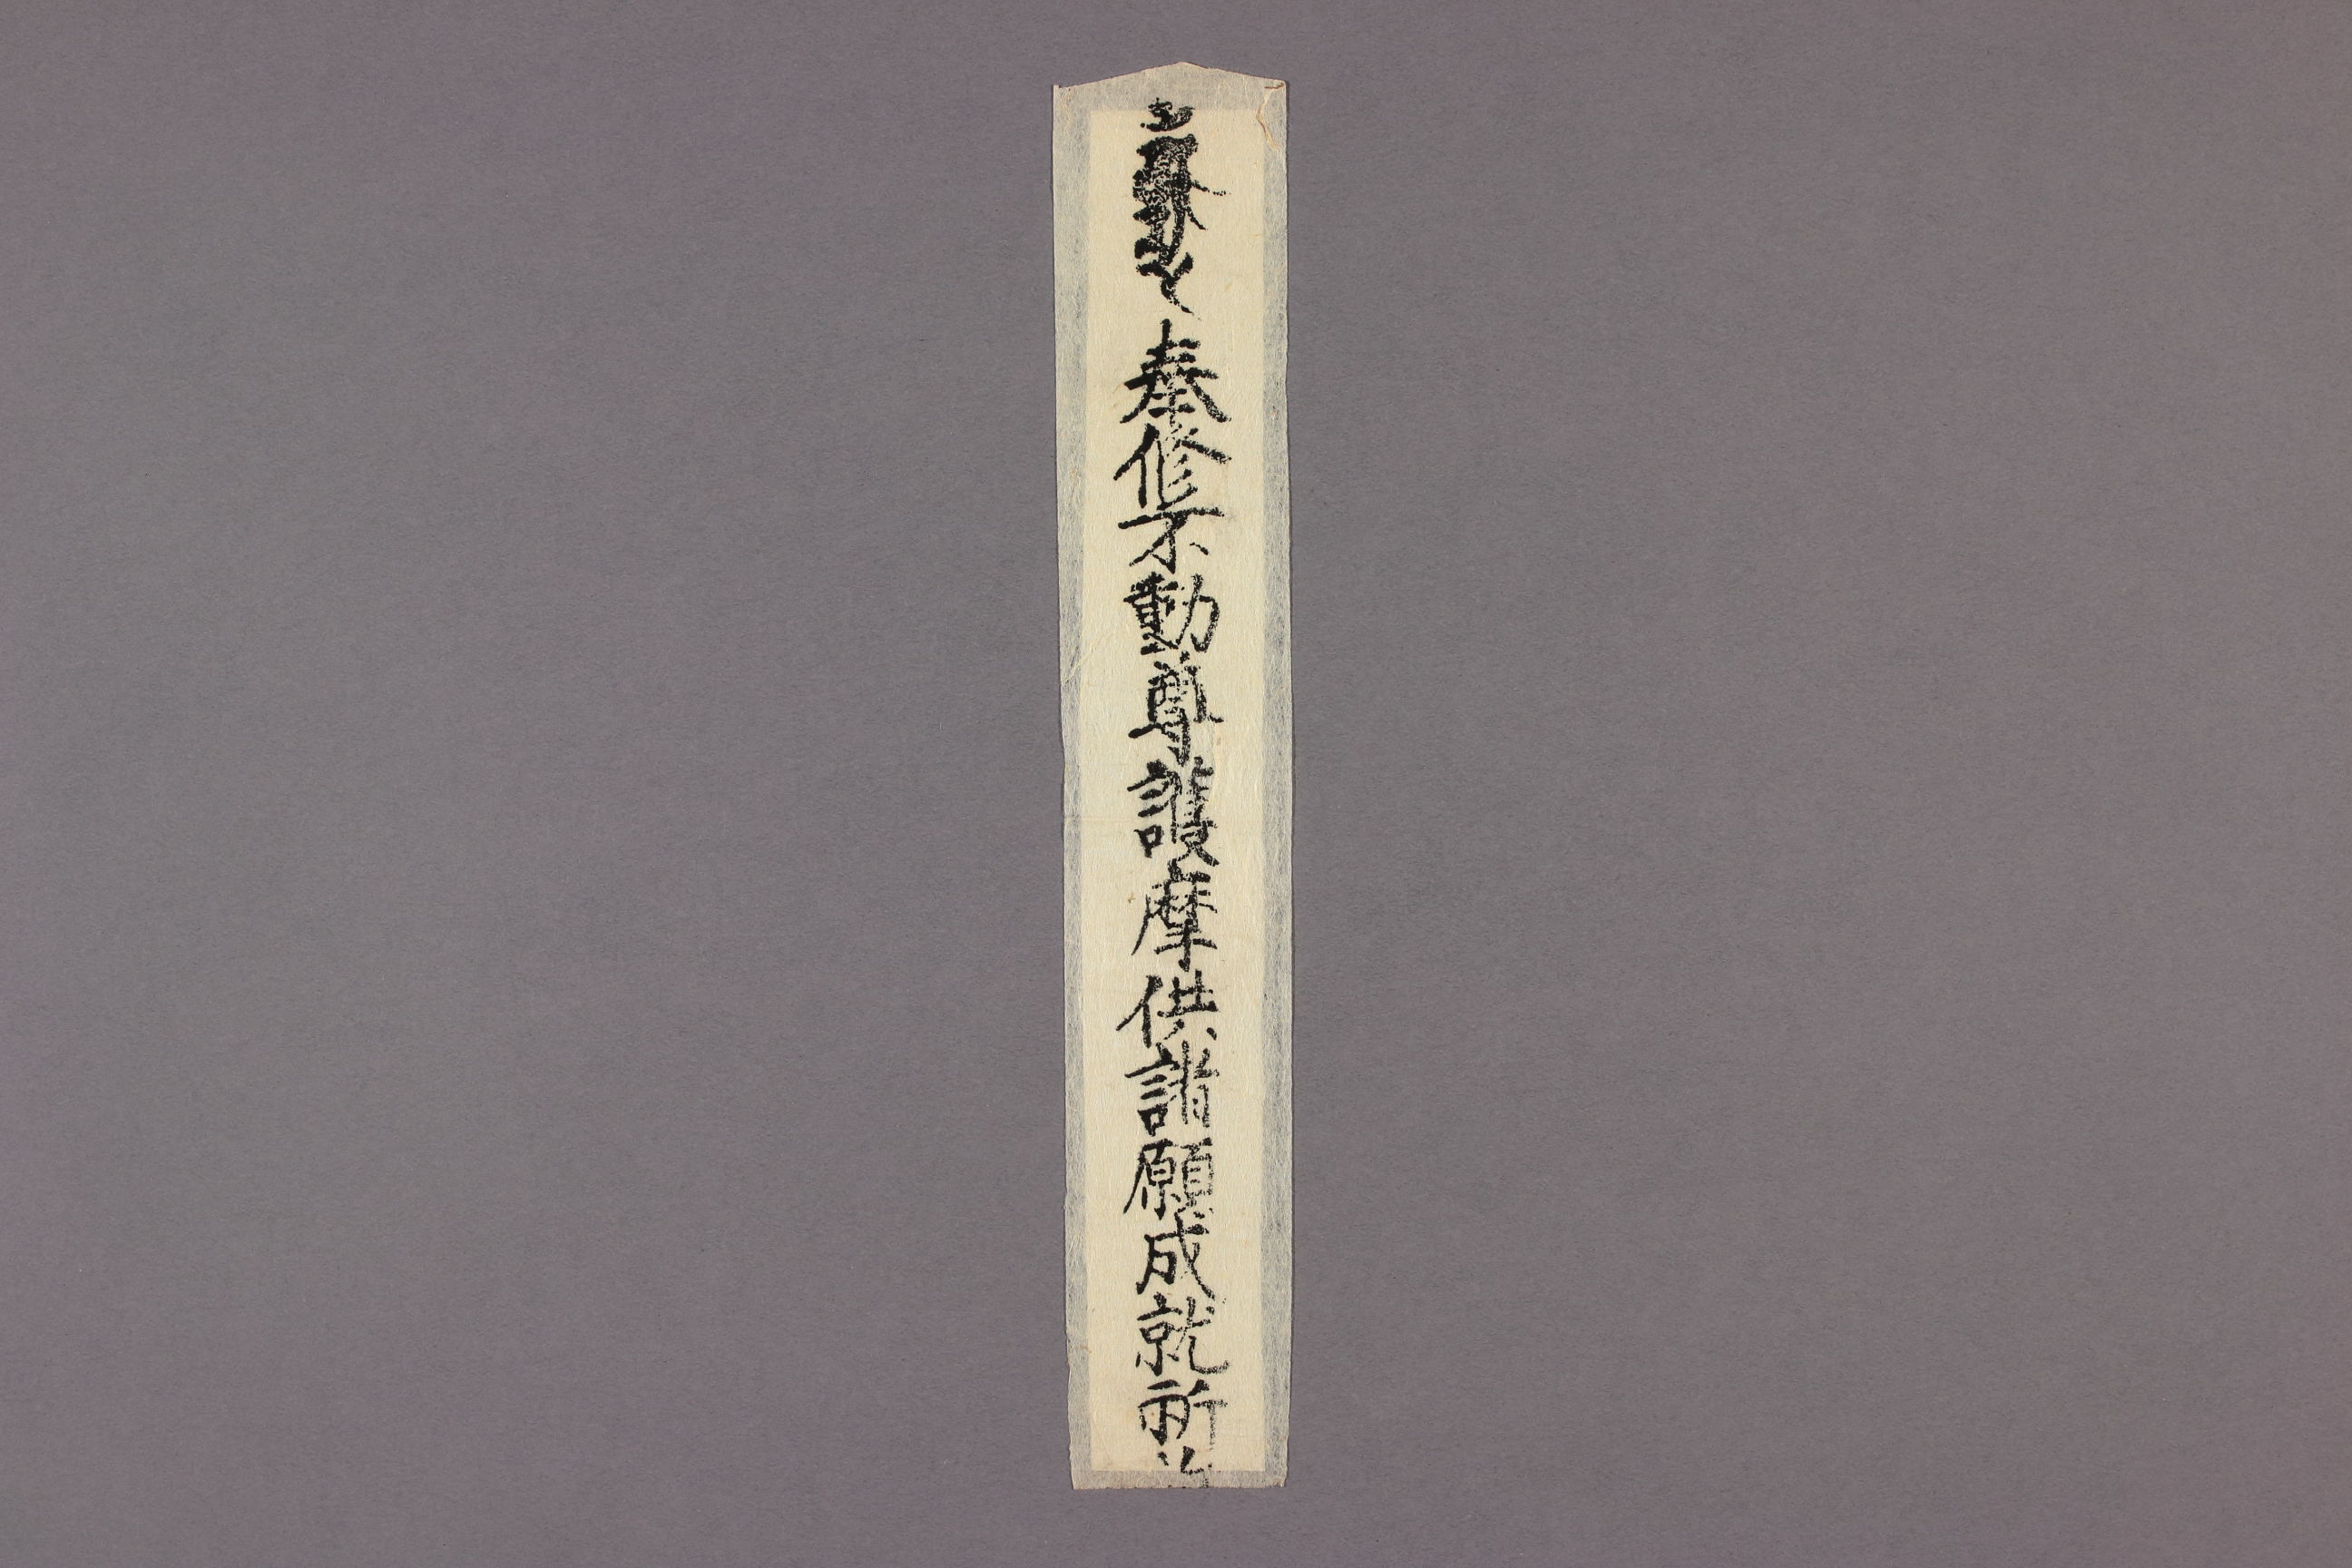 奉修不動尊護摩供諸願成就所